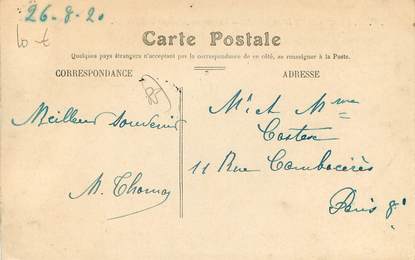 26-8-20
Carte Postale
Quelques pays étrangers n'acceptant pas la correspondance de ce côté, se renseigner à la Poste.
CORRESPONDANCE
ADRESSE
Meilleur souvenir
M. Thomas
Mr et Mme
Costex
11 Rue Cambacérès
Paris 8e